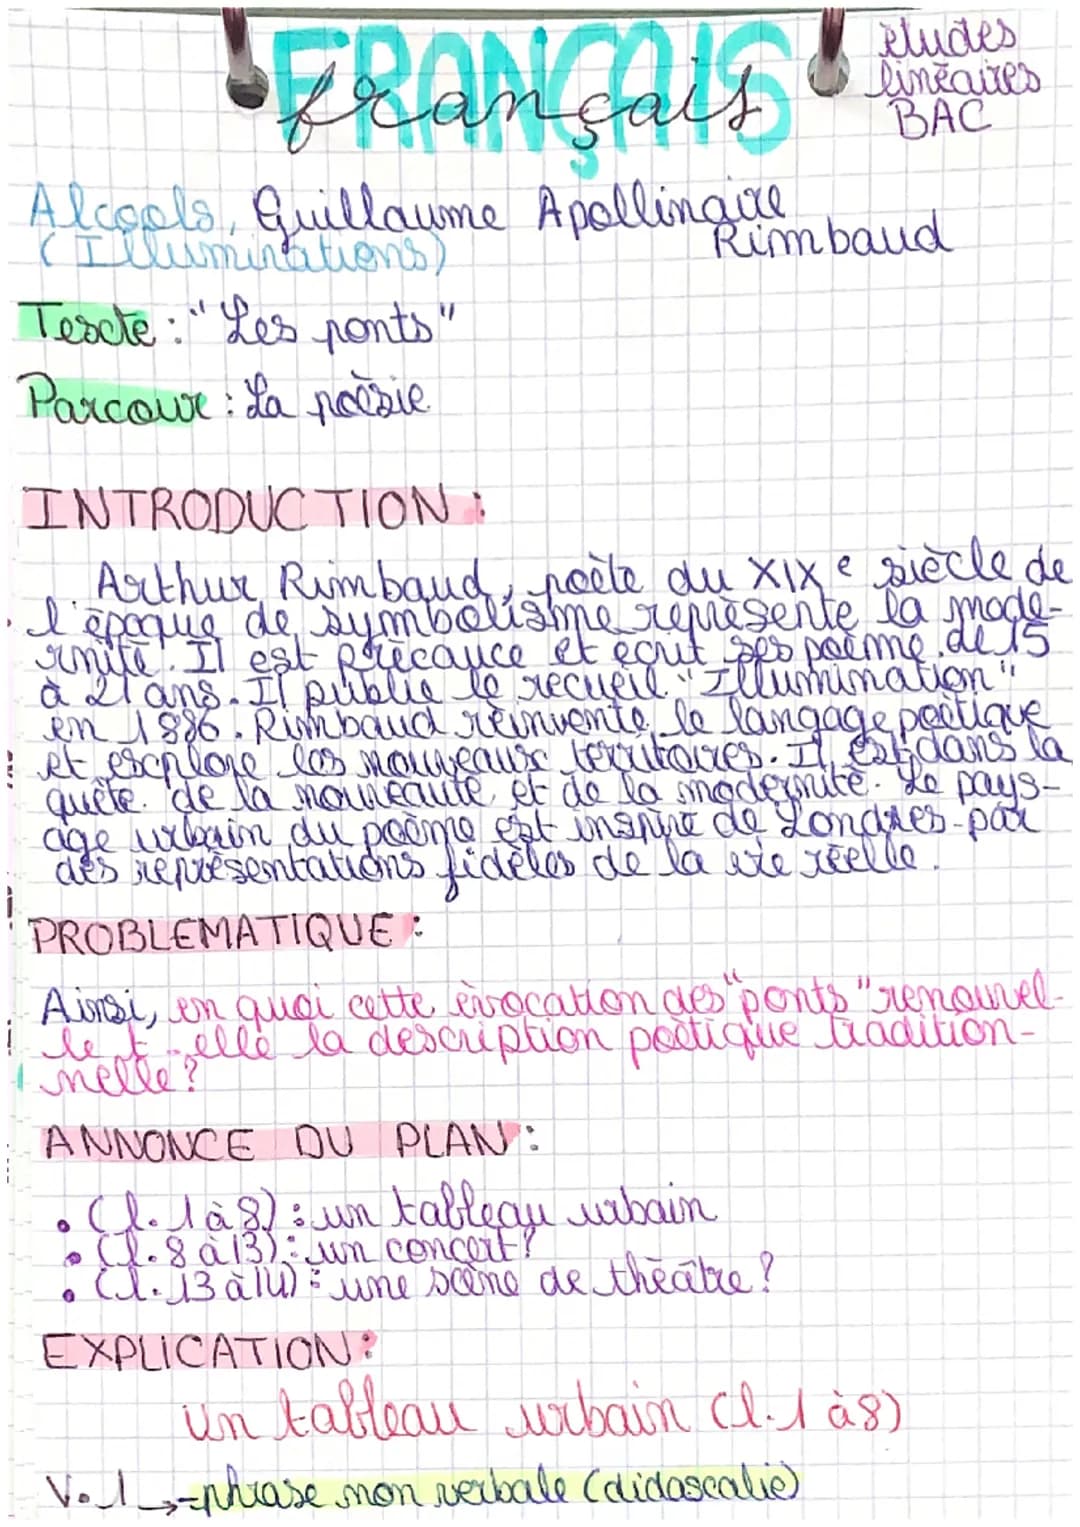 FRANÇAIS
français
études
linéaires
BAC
Alcools, Guillaume Apollinaire
(Illuminations) Rimbaud
Texte : "Les ponts"
Parcour : La poésie
INTRODUCTION :
Arthur Rimbaud, poète du XIXe siècle de
l'époque de symbolisme représente la mode-
rnité. Il est précauce et ecrit ses poème de 15
à 21 ans. Il publie le recueil "Illumination"
en 1886. Rimbaud réinvente le langage poétique
et explore les nouveaux territoires. Il est dans la
quête de la nouveauté et de la modernité. Le pays-
age urbain du poème est inspiré de Londres par
des représentations fidèles de la vie réelle.
PROBLEMATIQUE :
Ainsi, en quoi cette évocation des "ponts" renouvel-
le t-elle la description poétique tradition-
nelle ?
ANNONCE DU PLAN :
• (l. 1 à 8) : un tableau urbain
• (l. 8 à 13) : un concert ?
• (l. 13 à 14) : une scène de théâtre ?
EXPLICATION :
Un tableau urbain (l. 1 à 8)
V. 1 → - phrase non verbale (didascalie)